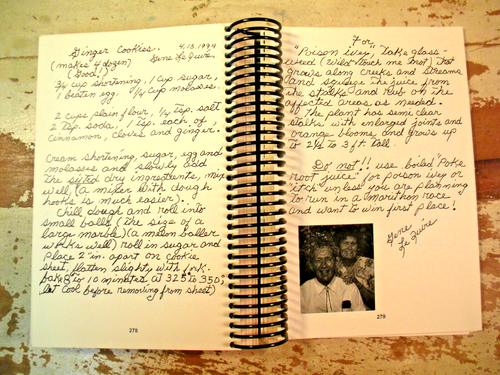 Ginger Cookies.. 4.15.1994
(makes 4 dozen) Gene LeQuire.
(Good!)
3/4 cup shortening, 1 cup sugar,
1 beaten egg. 1/4 cup molasses.
2 cups plain flour, 1/4 tsp. salt
2 tsp. soda, 1 tsp. each of
cinnamon, cloves and ginger.
Cream shortening, sugar, egg and
molasses and slowly add
the sifted dry ingredients, mix
well, (a mixer with dough
hooks is much easier).
Chill dough and roll into
small balls (the size of a
large marble) (a melon baller
works well) roll in sugar and
place 2 in. apart on cookie
sheet, flatten slightly with fork.
bake 8 to 10 minutes at 325° to 350°,
let cool before removing from sheet)
278
"For,"
"Poison ivey," take glass-
weed (wild-touch me knot) that
grows along creeks and streams
and squeese the juice from
the stalks and rub on the
affected areas as needed.
The plant has semi clear
stalks, with enlarged joints and
orange blooms and grows up
to 2 1/2 to 3 ft. tall.
Do not!! use boiled "Poke
root juice" for poison ivey or
"itch" unless you are planning
to run in a marithon race
and want to win first place!
Gene
LeQuire
279